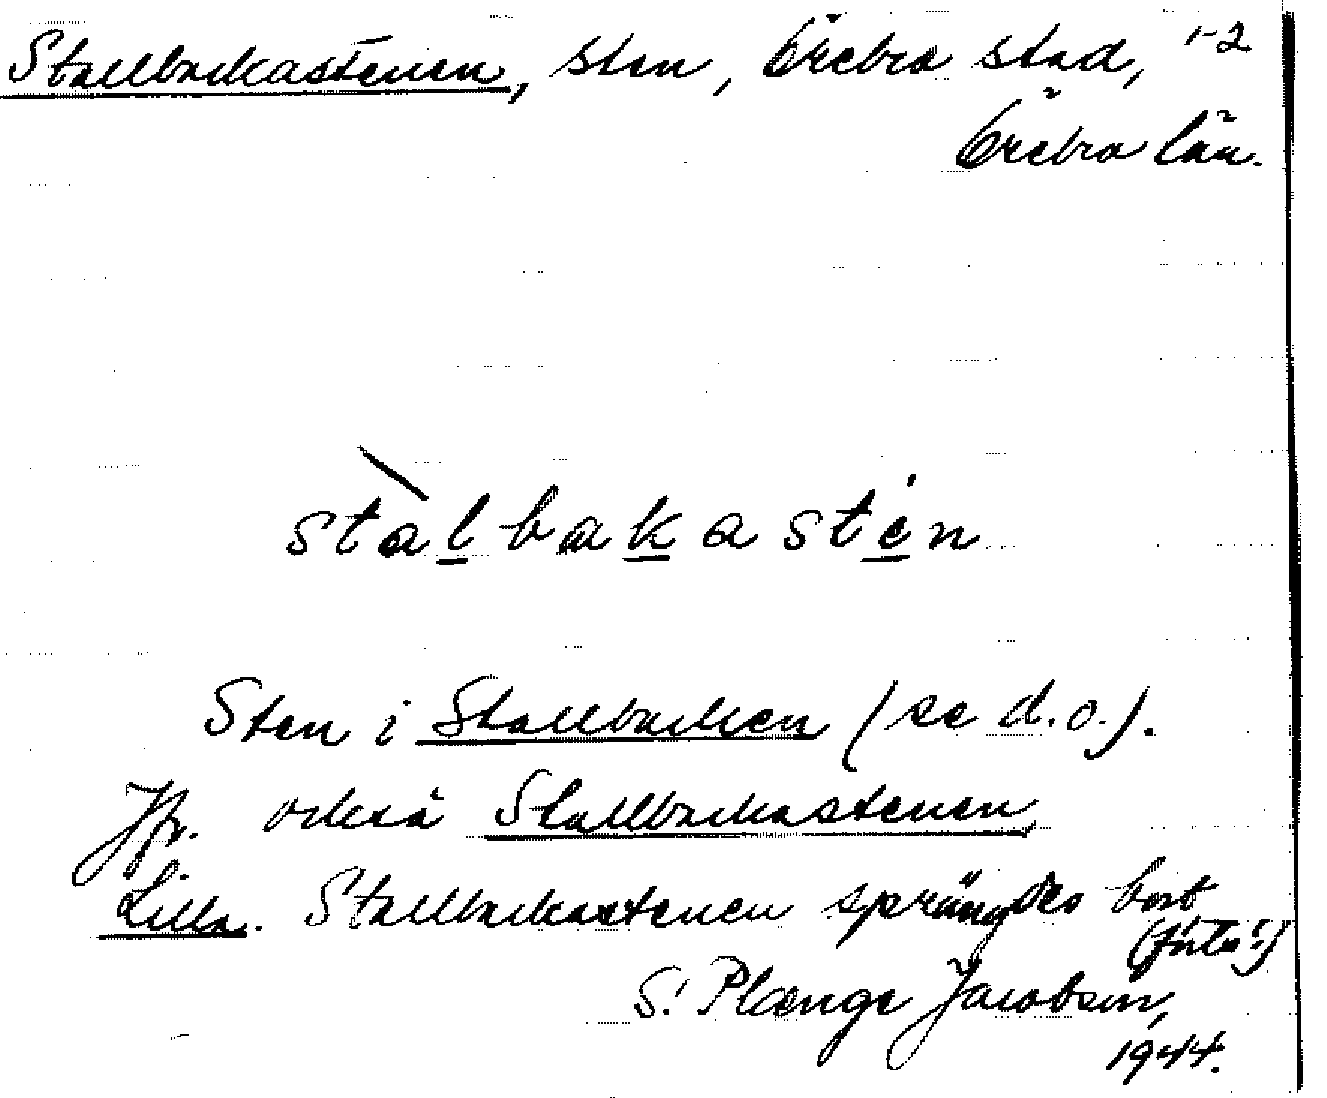 Stallbackastenen, sten, Örebro stad, 1-2
Örebro län.
stàlbakastén
Sten i Stallbacken (se d.o.).
Jfr. också Stallbackastenen,
Lilla. Stallbackastenen sprängdes bort
S. Plænge Jacobson,
1944.